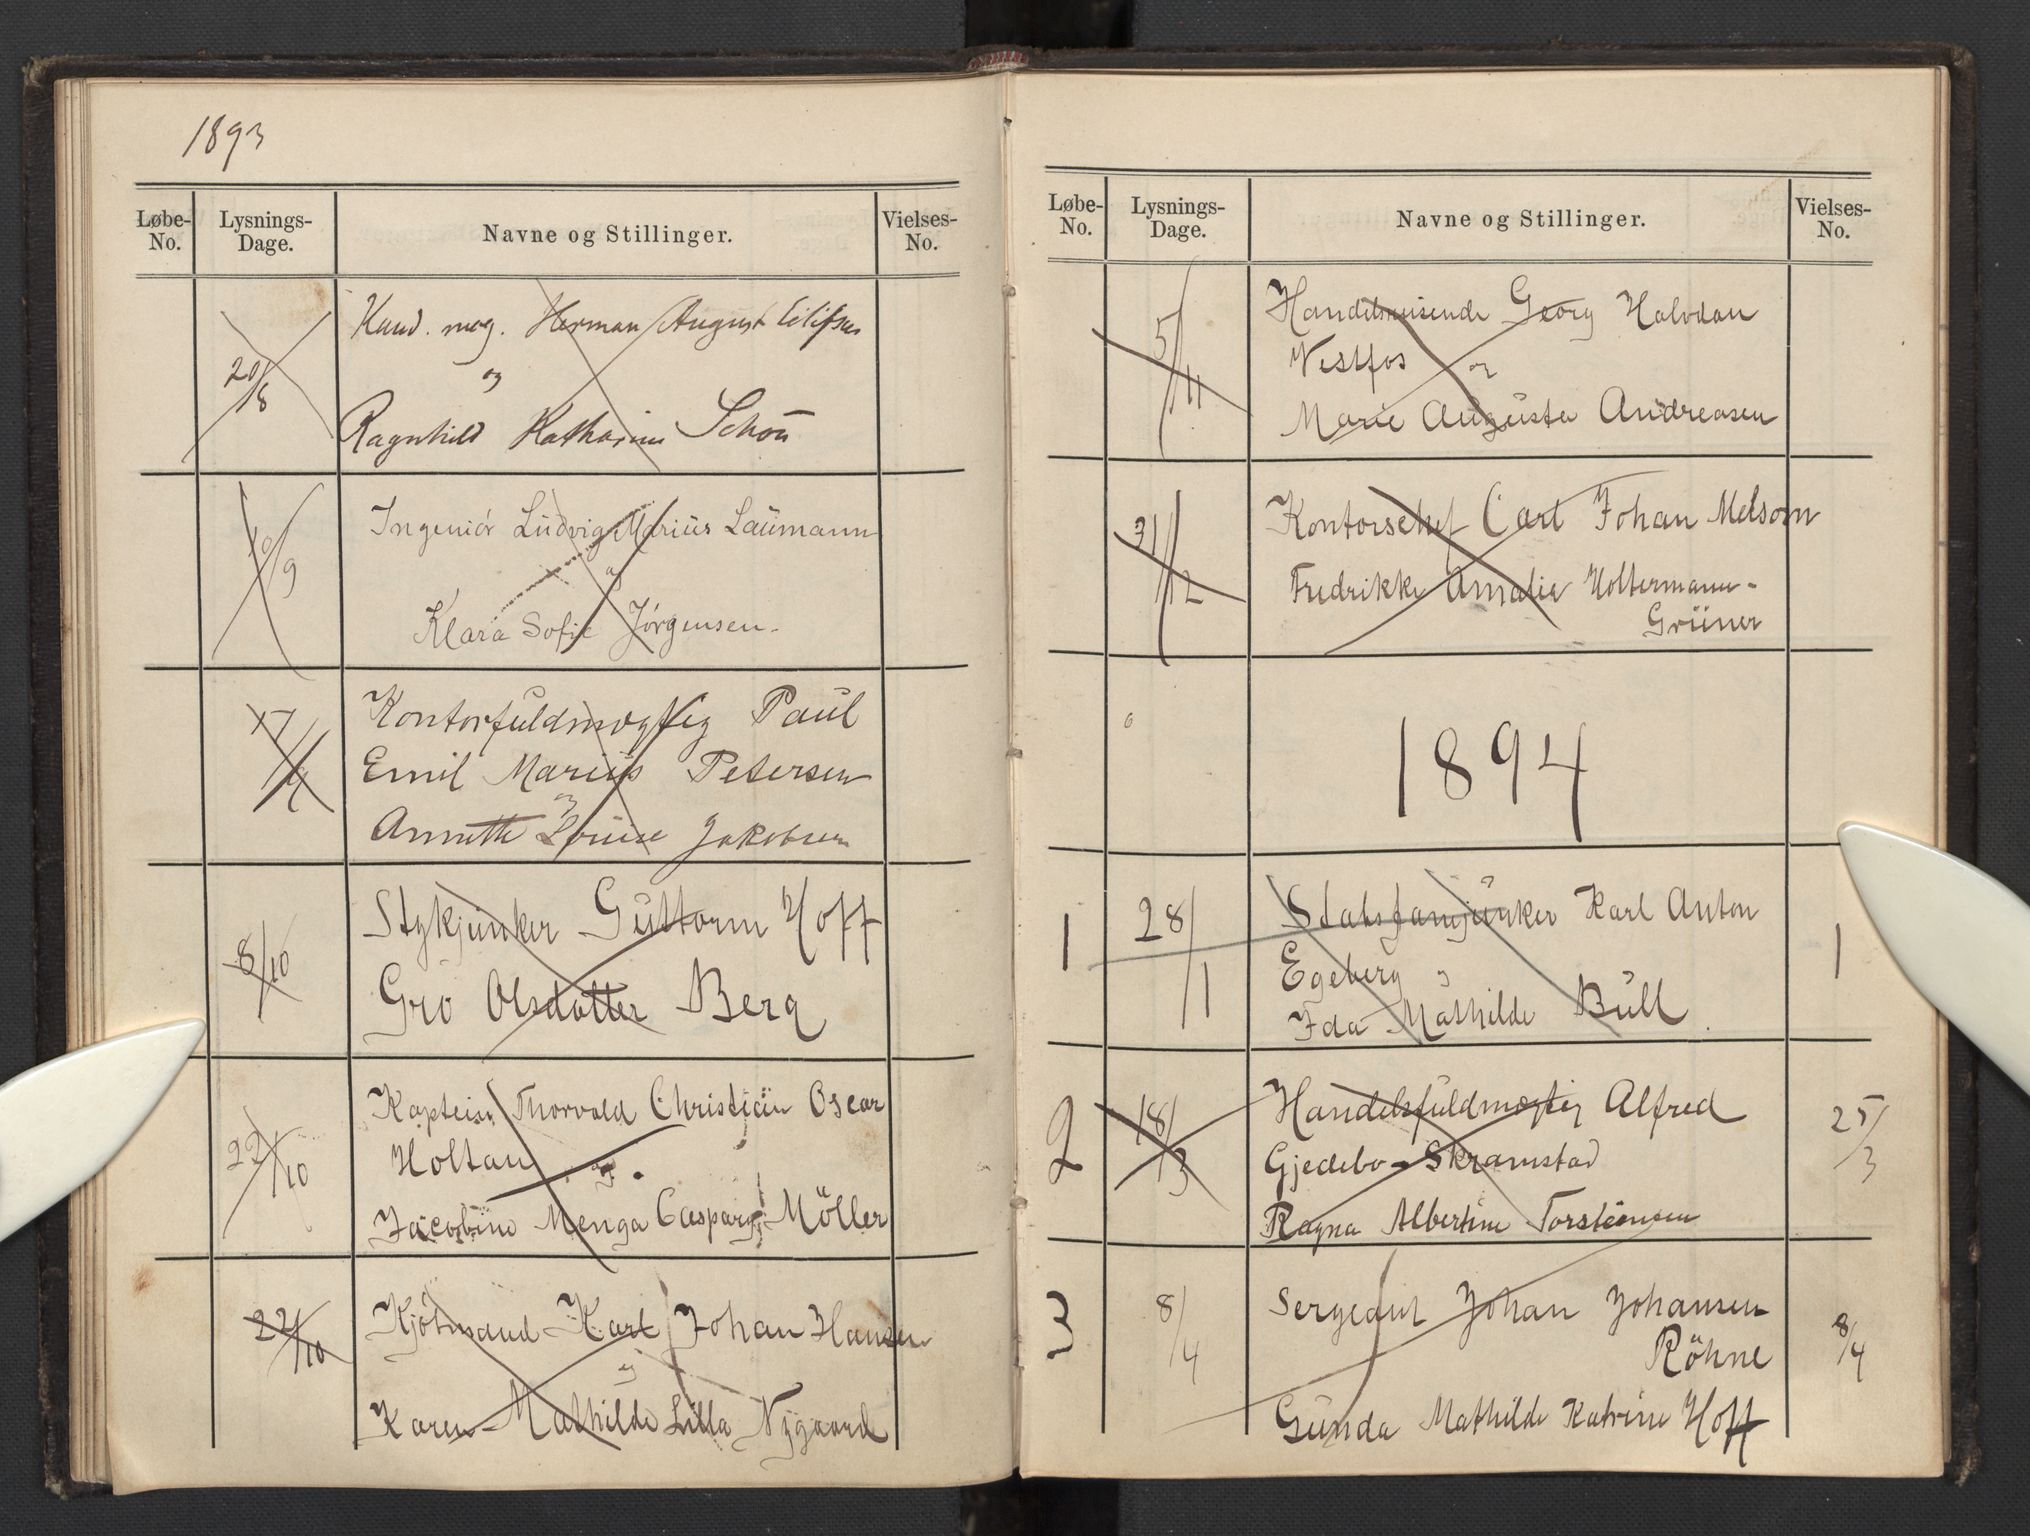 1893
Løbe-No. Lysnings-Dage. Navne og Stillinger. Vielses-No.
20/8 Kand. mag. Herman August Eilifsen
og
Ragnhild Katharine Schou
10/9 Ingeniör Ludvig Marius Laumann
og
Klara Sofie Jörgensen.
17/9 Kontorfuldmægtig Paul
Emil Marius Petersen
og
Annette Louise Jakobsen
8/10 Stykjunker Guttorm Hoff
Gro Olsdatter Berg
22/10 Kaptein Thorvald Christian Oscar
Holtan og
Jacobine Menga Caspary Möller
22/10 Kjöbmand Karl Johan Hansen
og
Karen Mathilde Lilla Nygaard
Løbe-No. Lysnings-Dage. Navne og Stillinger. Vielses-No.
5/11 Handelsreisende Georg Halvdan
Vestfos og
Marie Augusta Andreasen
31/12 Kontorschef Carl Johan Melsom
Fredrikke Amalie Holtermann-
Grüner
1894
1 28/1 Statsganjunker Karl Anton 1
Egeberg og
Ida Mathilde Bull
2 18/3 Handelsfuldmægtig Alfred 25/3
Gjedebo-Skramstad
Ragna Albertine Torstensen
3 8/4 Sergeant Johan Johansen 8/4
Röhne
Gunda Mathilde Katrine Hoff